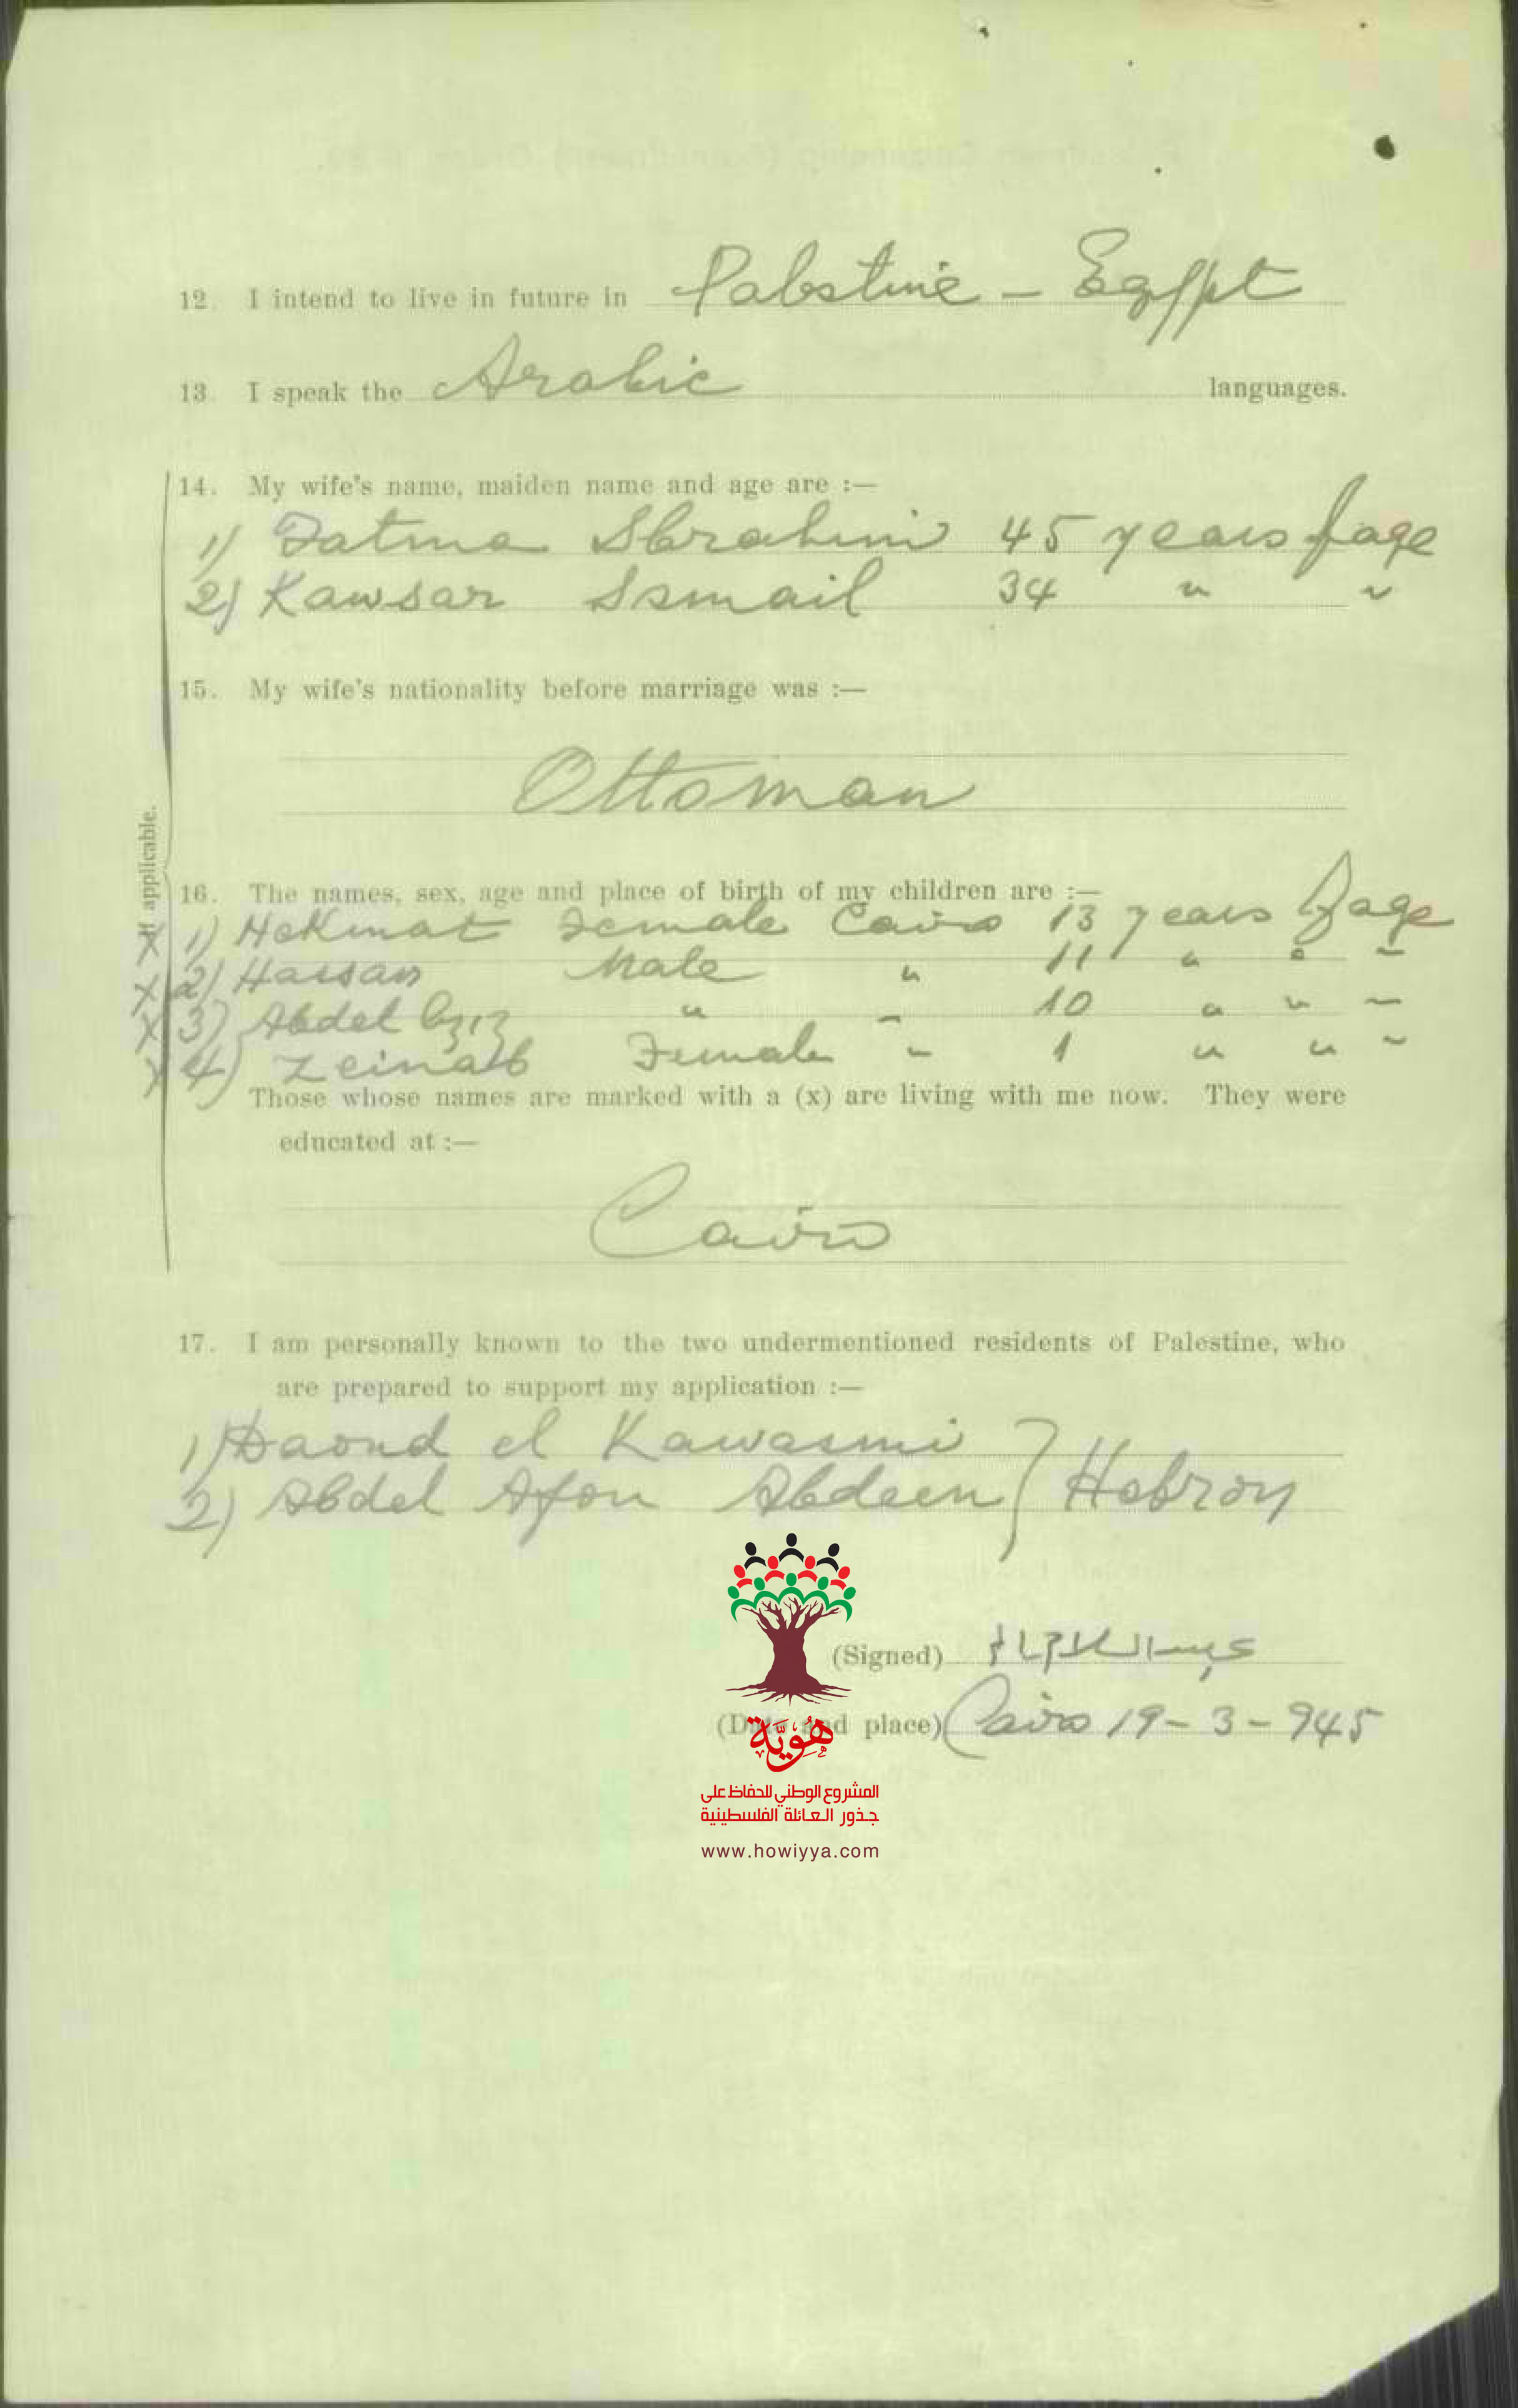 12. I intend to live in future in Palestine - Egypt
13. I speak the Arabic languages.
14. My wife's name, maiden name and age are :—
1) Fatma Ibrahim 45 years of age
2) Kawsar Ismail 34 " "
15. My wife's nationality before marriage was :—
Ottoman
If applicable.
16. The names, sex, age and place of birth of my children are :—
X 1) Hekmat Female Cairo 13 years of age
X 2) Hassan Male " 11 " " "
X 3) Abdel Aziz " " 10 " " "
X 4) Zeinab Female " 1 " " "
Those whose names are marked with a (x) are living with me now. They were
educated at :—
Cairo
17. I am personally known to the two undermentioned residents of Palestine, who
are prepared to support my application :—
1) Daoud el Kawasmi
2) Abdel Afou Abdeen } Hebron
(Signed)
(Date and place) Cairo 19-3-945
هُويَّة
المشروع الوطني للحفاظ على
جذور العائلة الفلسطينية
www.howiyya.com